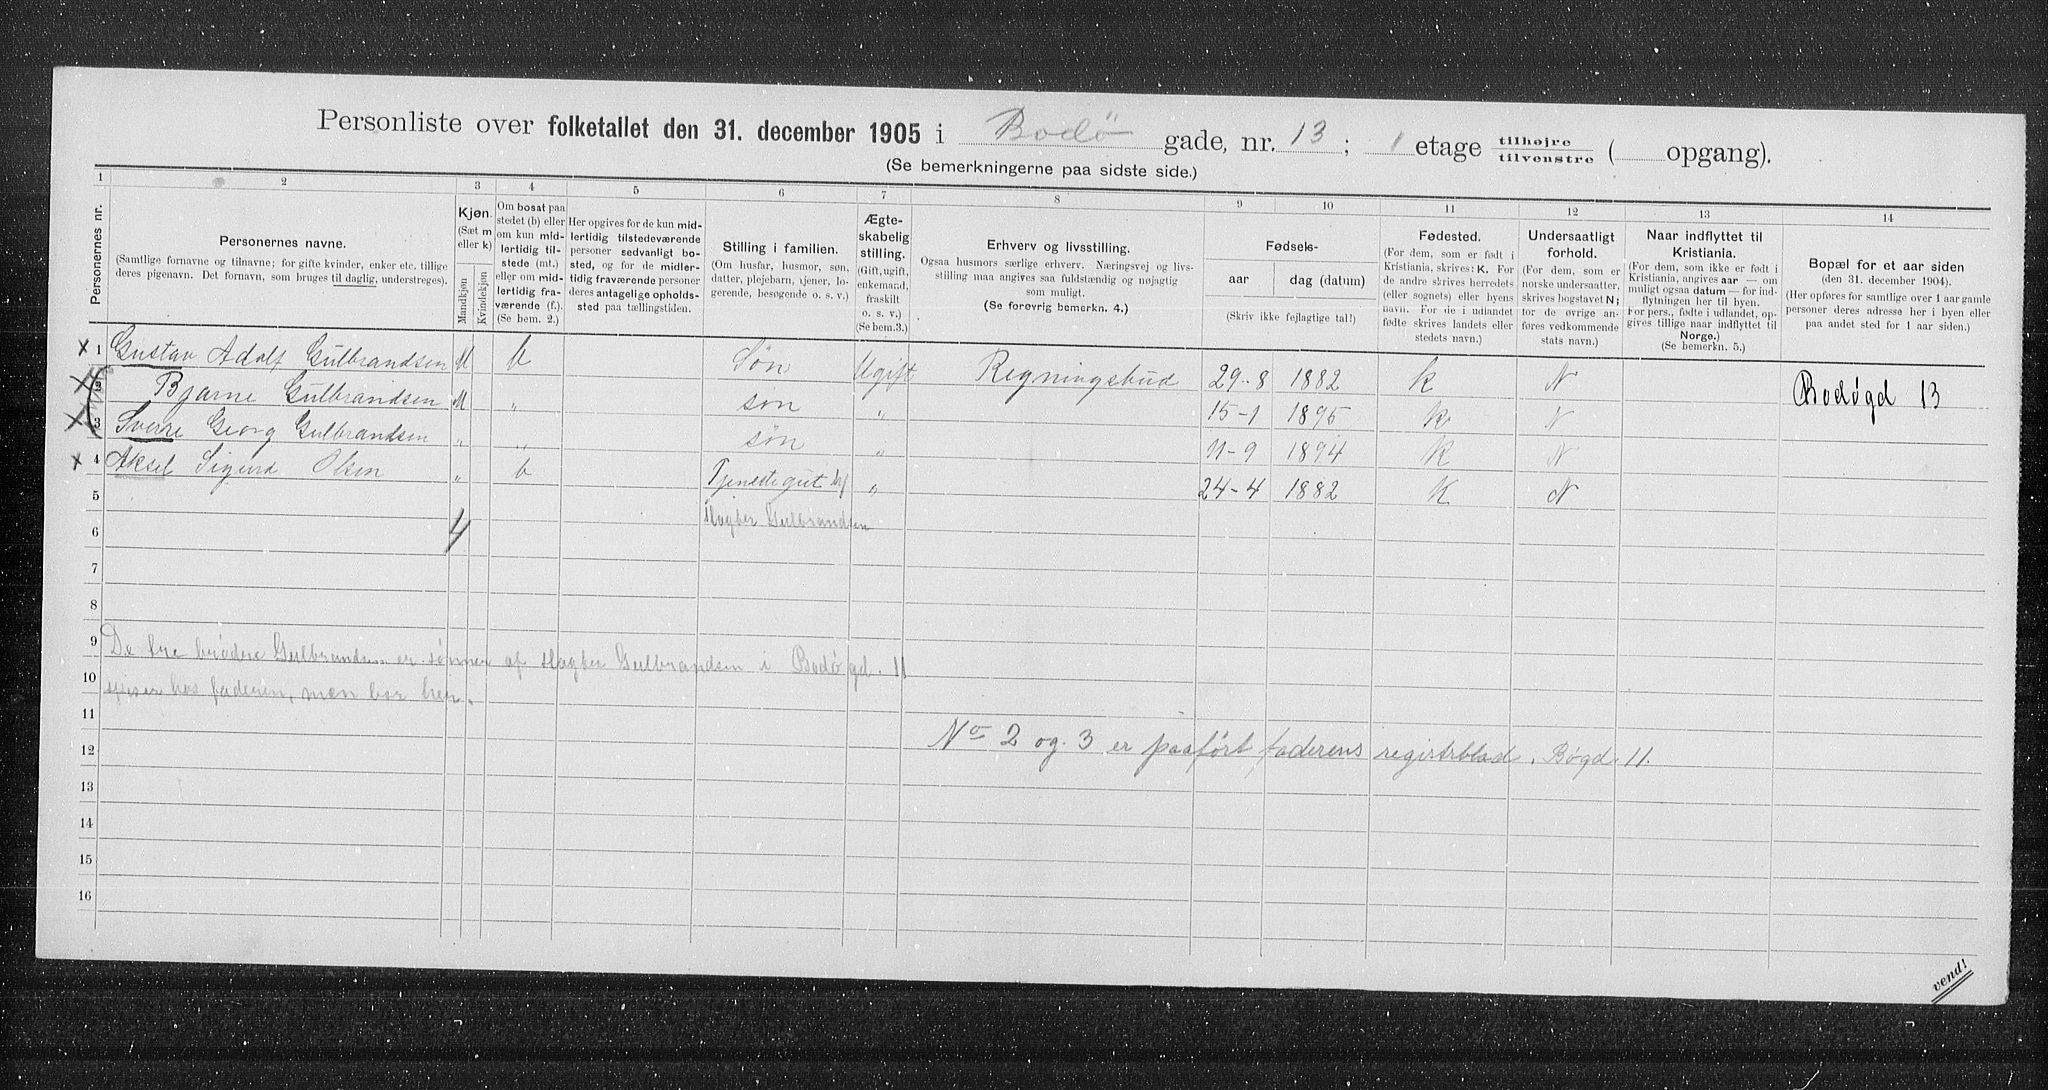 Personliste over folketallet den 31. december 1905 i Bodø gade, nr. 13; 1 etage tilhøjre tilvenstre ( opgang).
(Se bemerkningerne paa sidste side.)
1 2 3 4 5 6 7 8 9 10 11 12 13 14
Personernes nr.
Personernes navne.
(Samtlige fornavne og tilnavne; for gifte kvinder, enker etc. tillige
deres pigenavn. Det fornavn, som bruges til daglig, understreges).
Kjøn.
(Sæt m
eller k)
Mandkjøn
Kvindekjøn
Om bosat paa
stedet (b) eller
om kun mid-
lertidig til-
stede (mt.)
eller om mid-
lertidig fra-
værende (f.).
(Se bem. 2.)
Her opgives for de kun mid-
lertidig tilstedeværende
personer sedvanlig bo-
sted, og for de midler-
tidig fraværende personer
deres antagelige opholds-
sted paa tællingstiden.
Stilling i familien.
(Om husfar, husmor, søn,
datter, plejebarn, tjener, lo-
gerende, besøgende o. s. v.)
Ægte-
skabelig
stilling.
(Gift, ugift,
enkemand,
fraskilt
o. s. v.)
(Se bem.3.)
Erhverv og livsstilling.
Ogsaa husmors særlige erhverv. Næringsvej og livs-
stilling maa angives saa fuldstændig og nøjagtig
som muligt.
(Se forøvrig bemerkn. 4.)
Fødsels-
aar
dag (datum)
(Skriv ikke fejlagtige tal!)
Fødested.
(For dem, som er født i
Kristiania, skrives: K. For
de andre skrives herredets
(eller sognets) eller byens
navn. For de i udlandet
fødte skrives landets eller
stedets navn.)
Undersaatligt
forhold.
(For dem, som er
norske undersaatter,
skrives bogstavet N;
for de øvrige an-
føres vedkommende
stats navn.)
Naar indflyttet til
Kristiania.
(For dem, som ikke er født i
Kristiania, angives aar — om
muligt ogsaa datum — for ind-
flytningen her til byen.
For pers., fødte i udlandet, op-
gives tillige naar indflyttet til
Norge.)
(Se bemerkn. 5.)
Bopæl for et aar siden
(den 31. december 1904).
(Her opføres for samtlige over 1 aar gamle
personer deres adresse her i byen eller
paa andet sted for 1 aar siden.)
x 1 Gustav Adolf Gulbrandsen M b Søn Ugift Regningsbud 29-8 1882 K N Bodøgd 13
2 Bjarne Gulbrandsen M " søn " 15-1 1895 K N
3 Sverre Georg Gulbrandsen " " søn " 11-9 1894 K N
x 4 Aksel Sigurd Olsen " b Tjenestegut hf " 24-4 1882 K N
5 Hagber Gulbrandsen
4
6
7
8
9 De tre brødre Gulbrandsen er sønner af Hagber Gulbrandsen i Bodøgd. 11
10 spiser hos faderen, men bor her.
11
12 No 2 og 3 er paaført faderens registrblad, Bøgd. 11.
13
14
15
16
vend!